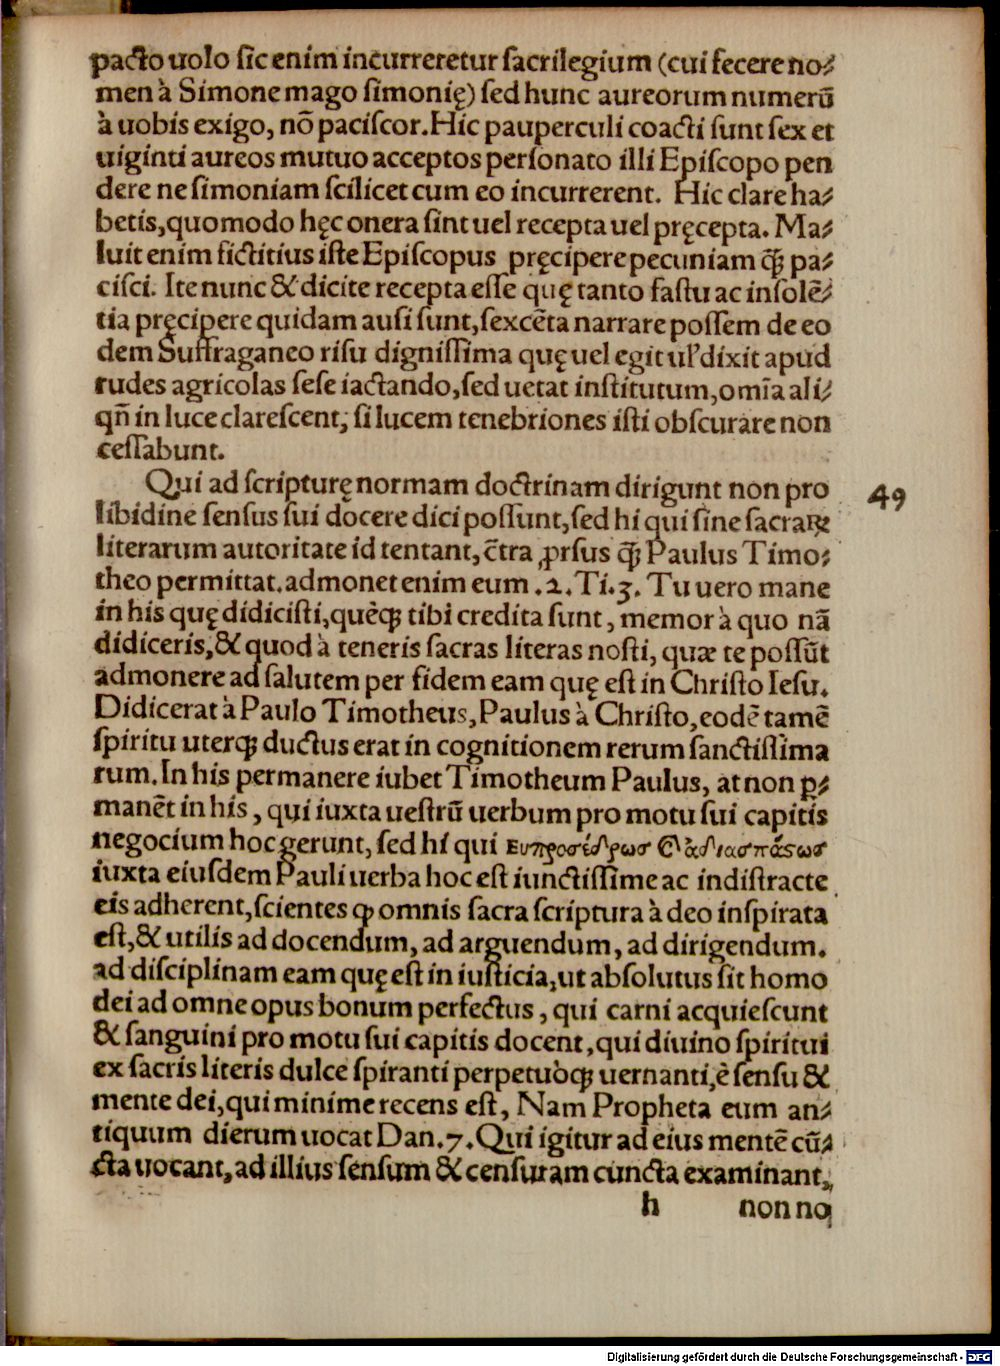 pacto uolo sic enim incurreretur sacrilegium (cui fecere no⸗
men à Simone mago simonię) sed hunc aureorum numerū
à uobis exigo, nō paciscor. Hic pauperculi coacti sunt sex et
uiginti aureos mutuo acceptos personato illi Episcopo pen
dere ne simoniam scilicet cum eo incurrerent. Hic clare ha⸗
betis, quomodo hęc onera sint uel recepta uel pręcepta. Ma⸗
luit enim fictitius iste Episcopus pręcipere pecuniam q̃ꝫ pa⸗
cisci. Ite nunc & dicite recepta esse quę tanto fastu ac insolē⸗
tia pręcipere quidam ausi sunt, sexcēta narrare possem de eo
dem Suffraganeo risu dignissima quę uel egit ul' dixit apud
rudes agricolas sese iactando, sed uetat institutum, omīa ali⸗
qñ in luce clarescent, si lucem tenebriones isti obscurare non
cessabunt.
Qui ad scripturę normam doctrinam dirigunt non pro
libidine sensus sui docere dici possunt, sed hi qui sine sacraꝝ
literarum autoritate id tentant, c̄tra ꝓrsus q̃ꝫ Paulus Timo⸗
theo permittat. admonet enim eum .2. Ti.3. Tu uero mane
in his quę didicisti, quęqꝫ tibi credita sunt, memor à quo nā
didiceris, & quod à teneris sacras literas nosti, quæ te possūt
admonere ad salutem per fidem eam quę est in Christo Iesu.
Didicerat à Paulo Timotheus, Paulus à Christo, eodē tamē
spiritu uterqꝫ ductus erat in cognitionem rerum sanctissima
rum. In his permanere iubet Timotheum Paulus, at non ꝑ⸗
manēt in his, qui iuxta uestrū uerbum pro motu sui capitis
negocium hoc gerunt, sed hi qui ευπροσέδρωσ & ἀδιασπάςωσ
iuxta eiusdem Pauli uerba hoc est iunctissime ac indistracte
eis adherent, scientes ꝙ omnis sacra scriptura à deo inspirata
est, & utilis ad docendum, ad arguendum, ad dirigendum.
ad disciplinam eam quę est in iusticia, ut absolutus sit homo
dei ad omne opus bonum perfectus, qui carni acquiescunt
& sanguini pro motu sui capitis docent, qui diuino spiritui
ex sacris literis dulce spiranti perpetuòqꝫ uernanti, è sensu &
mente dei, qui minime recens est, Nam Propheta eum an⸗
tiquum dierum uocat Dan.7. Qui igitur ad eius mentē cū⸗
cta uocant, ad illius sensum & censuram cuncta examinant,
h non no
49
Digitalisierung gefördert durch die Deutsche Forschungsgemeinschaft - DFG